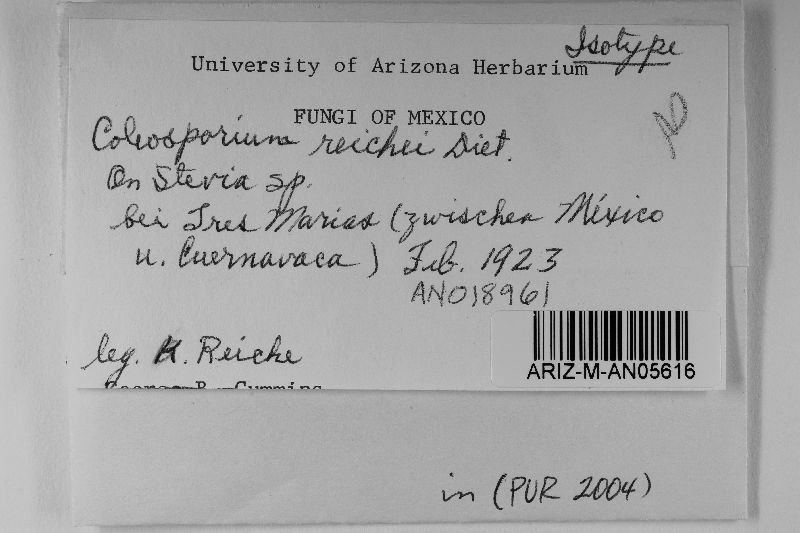 Isotype
University of Arizona Herbarium
FUNGI OF MEXICO
Coleosporium reichei Diet.
On Stevia sp.
bei Tres Marias (zwischen México
u. Cuernavaca) Feb. 1923
AN018961
leg. K. Reiche
ARIZ-M-AN05616
George B. Cummins
in (PUR 2004)